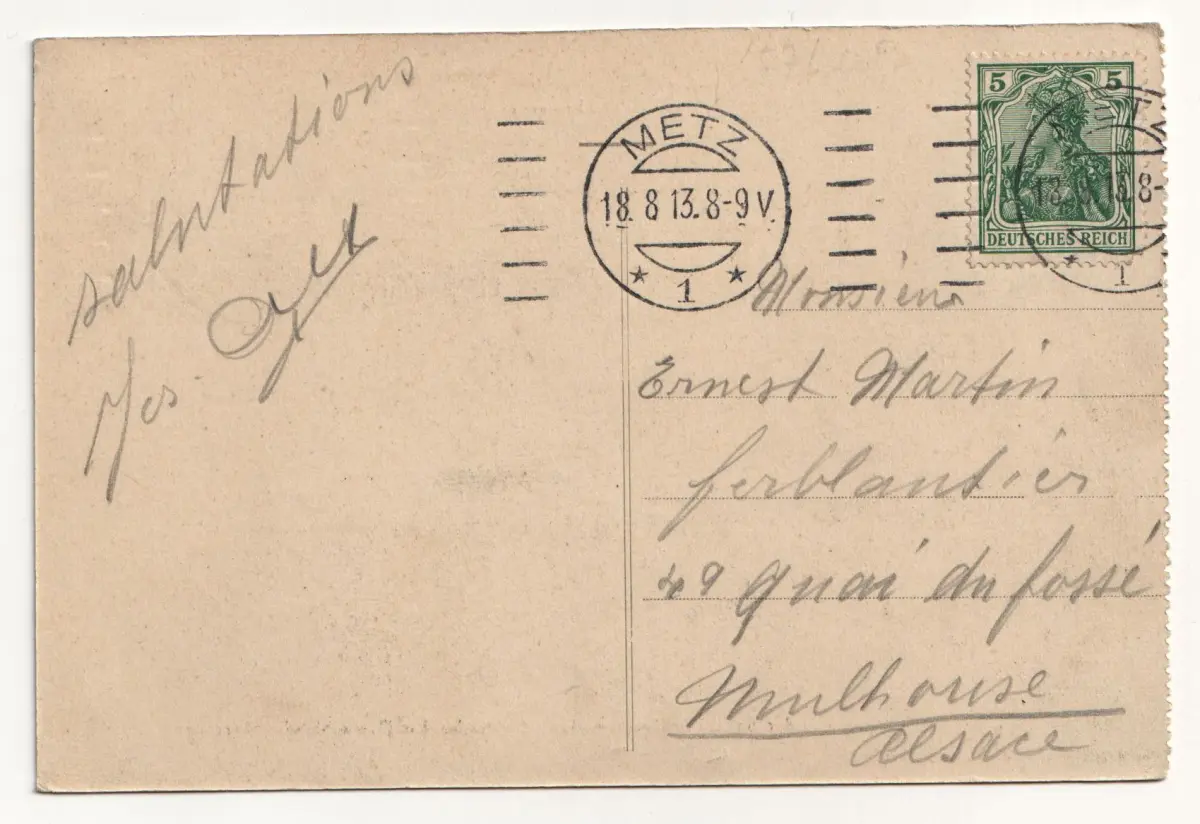 salutations
METZ
18. 8 13. 8-9 V.
1
5 5
DEUTSCHES REICH
18. 8 13. 8-
1
Monsieur
Ernest Martin
ferblantier
49 quai du fossé
Mulhouse
Alsace